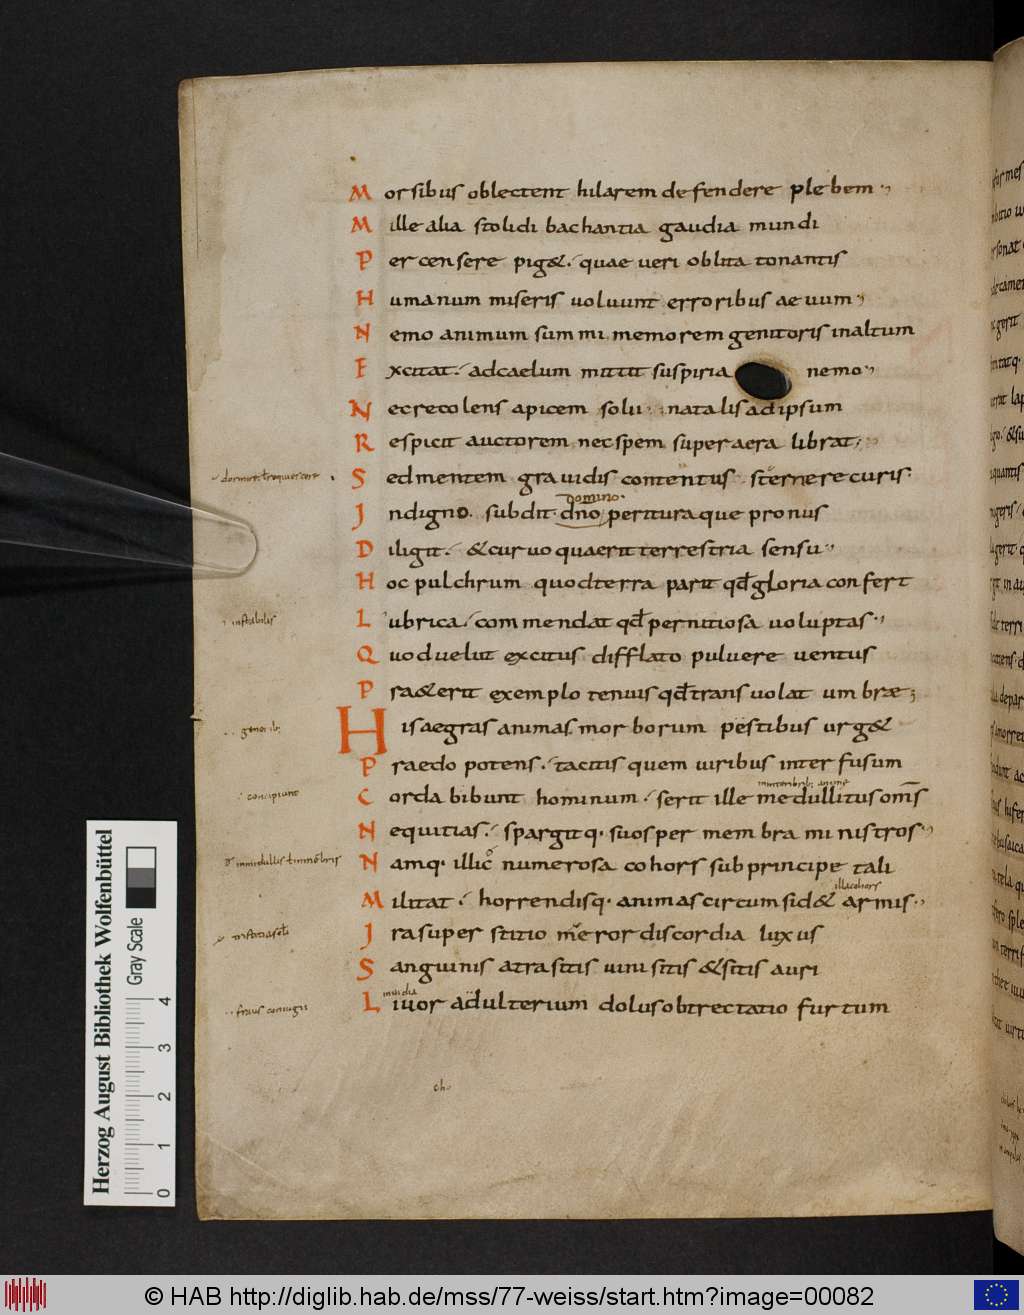 Morsibus oblectent hilarem defendere plebem
Mille alia stolidi bachantia gaudia mundi
Percensere pig&. quae ueri oblita tonantis
Humanum miseris uoluunt erroribus aeuum
Nemo animum summi memorem genitoris inaltum
Excitat. adcaelum mittit suspiria nemo
Nec recolens apicem solu natalis adipsum
Respicit auctorem nec spem super aera librat
Sed mentem grauidis contentus sternere curis
domino
Jndigno subdit dño perituraque pronus
Diligit. &curuo quaerit terrestria sensu
Hoc pulchrum quod terra parit qđ gloria confert
instabilis
Lubrica. commendat qđ pernitiosa uoluptas
Quod uelut excitus difflato puluere uentus
Pra&erit exemplo tenuis qđ transuolat umbrae;
His aegras animas. morborum pestibus urg&
Praedo potens. tacitis quem uiribus interfusum
concipiunt
Corda bibunt hominum. serit ille medullitus om̄s
Nequitias. spargitq. suos per membra ministros
Namq. illic numerosa cohors sub principe tali
illa cohors
Militat. horrendisq. animas circumsid& armis
Jra superstitio meror discordia luxus
Sanguinis atra sitis uini sitis &sitis auri
inuidia
Liuor adulterium dolus obtrectatio furtum
Herzog August Bibliothek Wolfenbüttel
Gray Scale
0 1 2 3 4
© HAB http://diglib.hab.de/mss/77-weiss/start.htm?image=00082